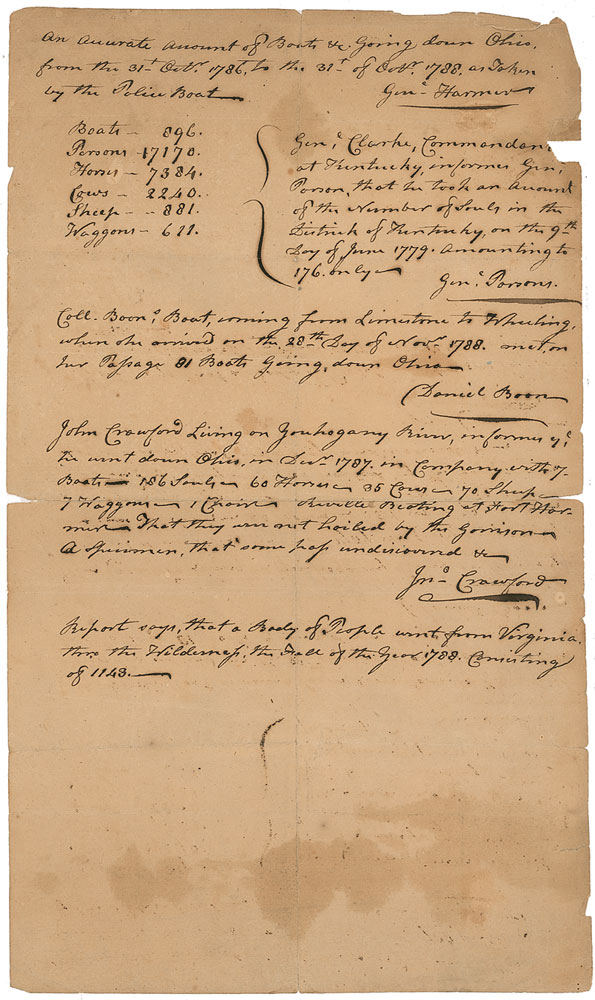 An accurate amount of Boats &c. Going down Ohio,
from the 31st Octr. 1786, to the 31st of Octr. 1788. as Taken
by the Police Boat Genl. Harmer
Boats - 896.
Persons - 17170.
Horses - 7384.
Cows - 2240.
Sheep - - 881.
Waggons - 611.
Genl. Clarke, Commandan
at Kentucky, informes Genl.
Parson, that he took an Amount
of the Number of Souls in the
District of Kentucky, on the 9th
Day of June 1779. Amounting to
176. only
Genl. Parsons.
Coll. Boons. Boat, coming from Limestone to Wheeling,
when she arrived on the 28th Day of Novr. 1788. met, on
her Passage 81 Boats Going, down Ohio
Daniel Boon
John Crawford Living on Youhogany River, informes yt.
he went down Ohio, in Decr. 1787. in Company with 7-
Boats 186 Souls 60 Horses 35 Cows 70 Sheep
7 Waggons 1 Chair Revelle Beating at Fort Har-
mer That they were not hailed by the Garrison
A Specimen, that some pass undiscoverd &c
Jno. Crawford
Report says, that a Body of People went from Virginia,
thro the Wilderness, the Fall of the Year 1788. Consisting
of 1143.